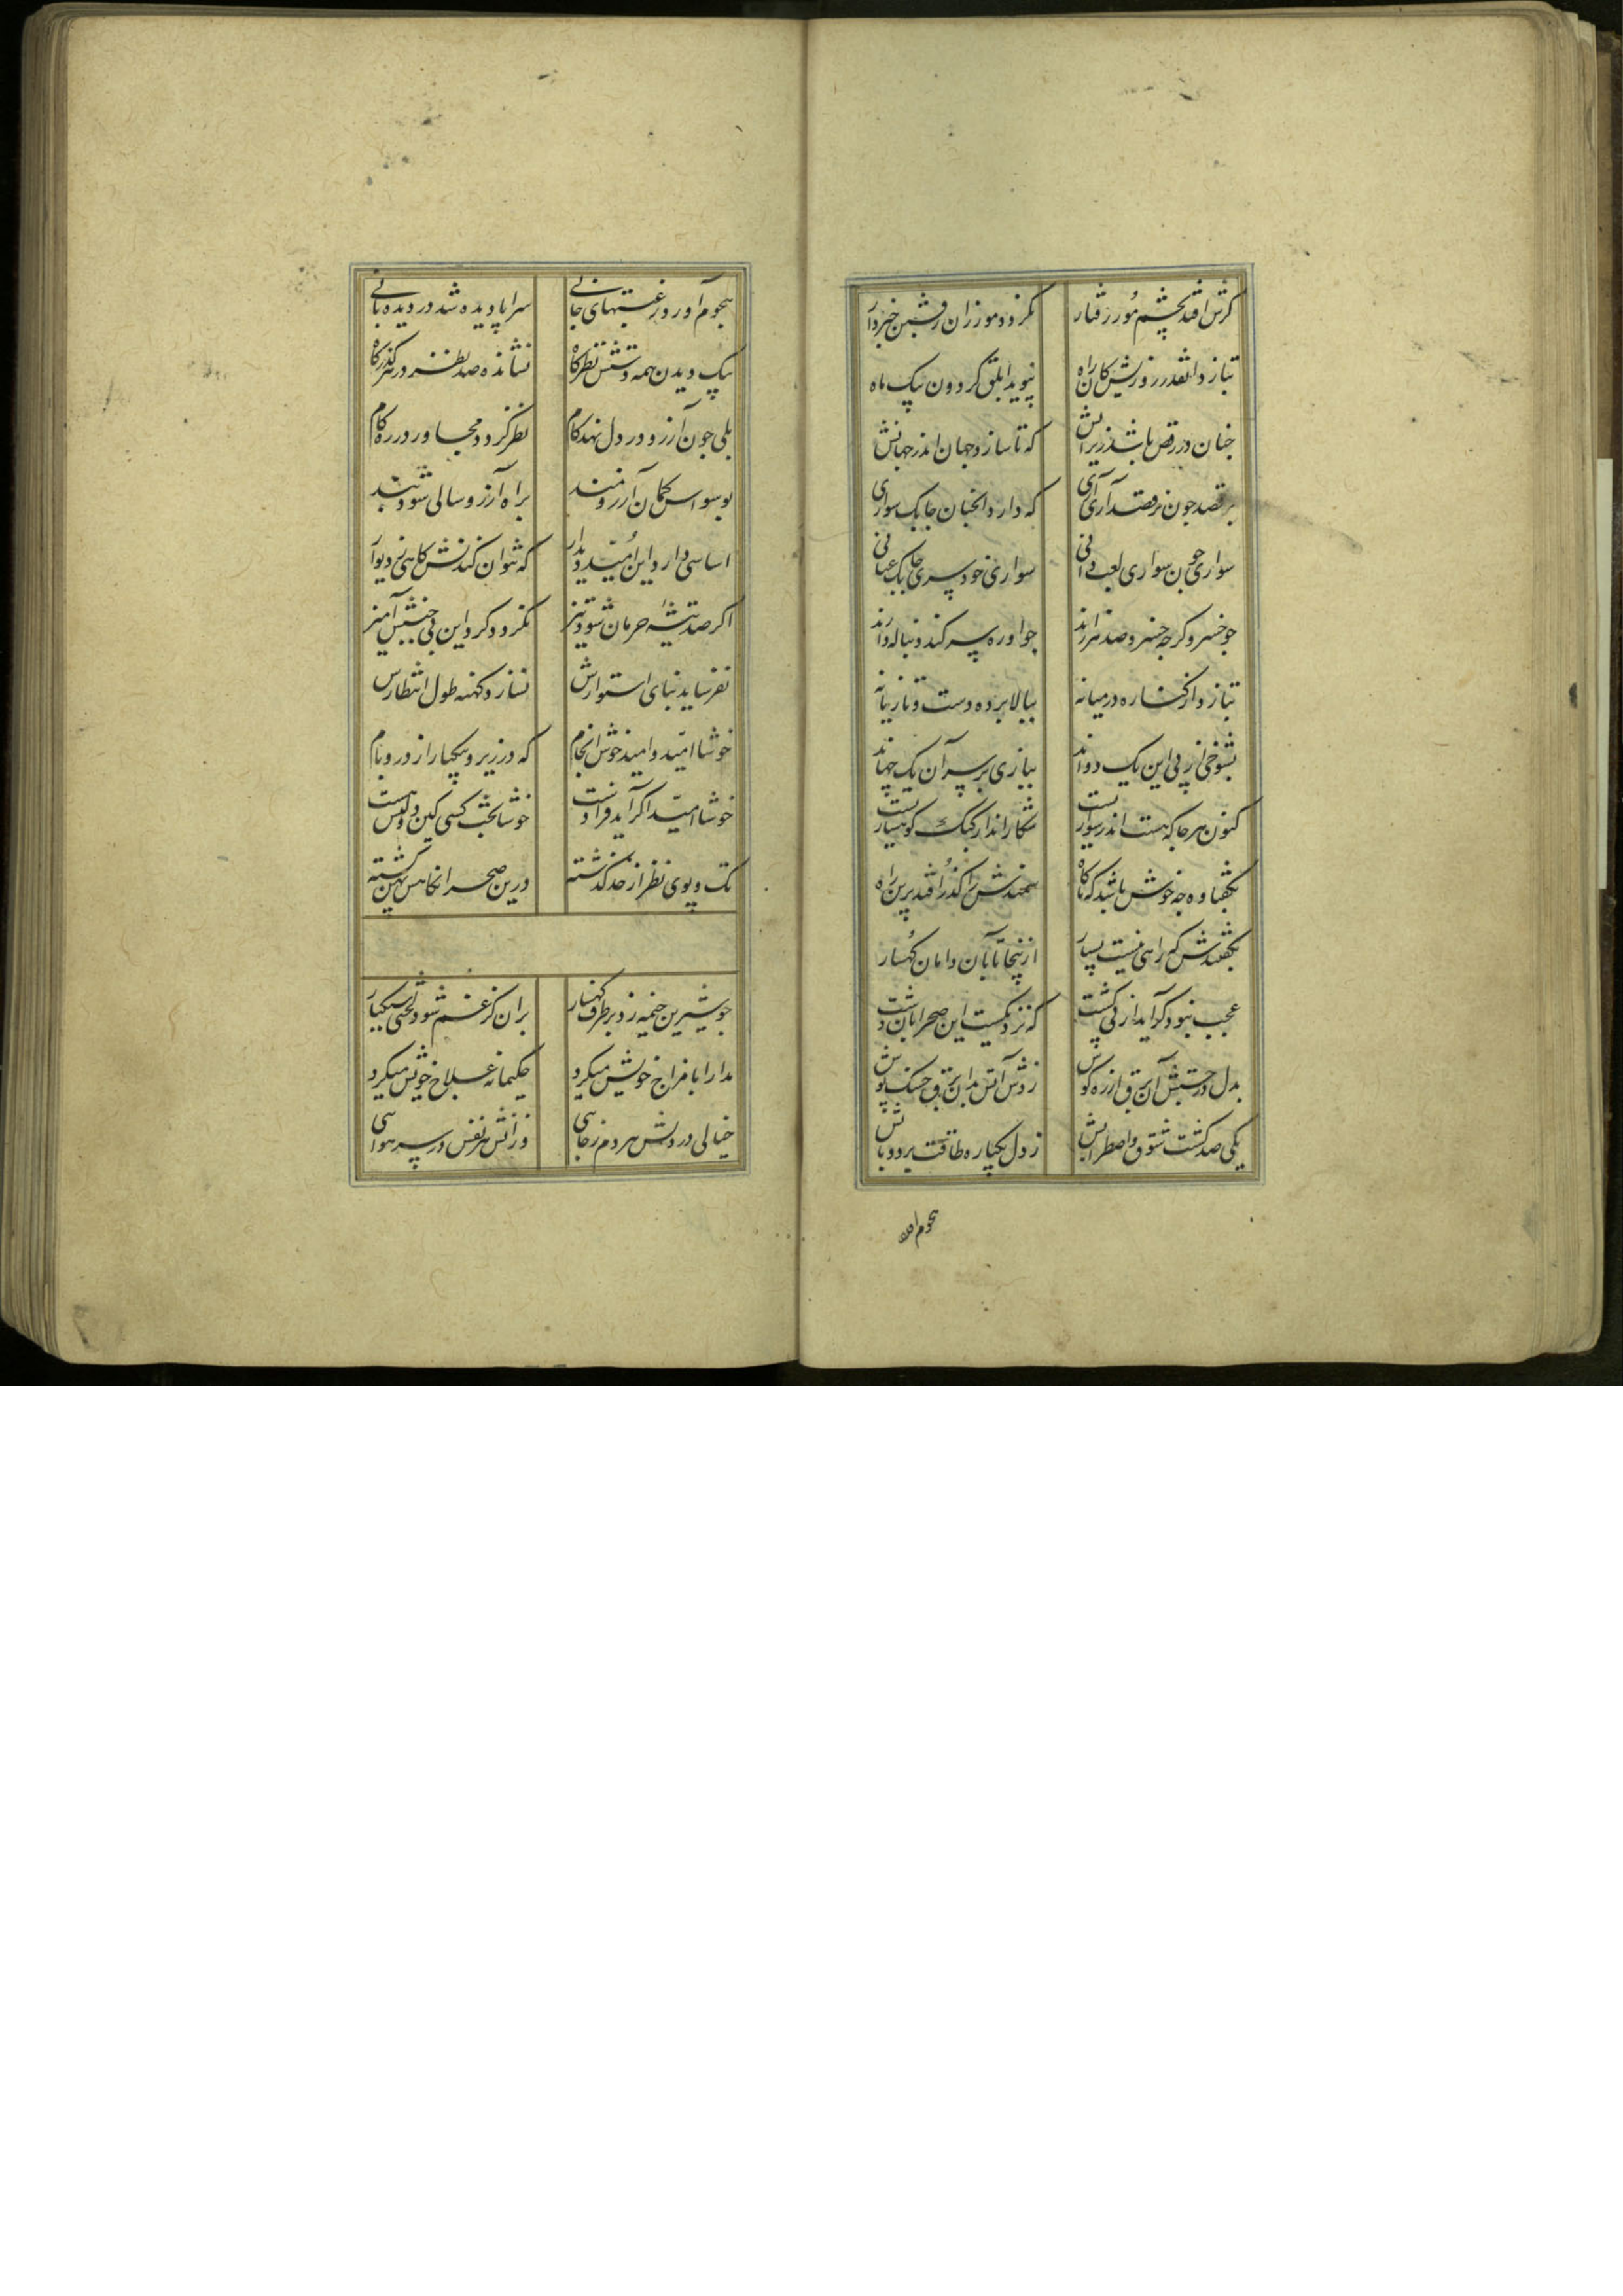 گرش افتد بچشم مور رفتار نگردد مور زان رفتن خبردار
بتازد انقدر روزیش کان راه نپوید ابلق گردون بیک ماه
چنان در رقص باشد زیر رانش که تا سازد جهان اندر جهانش
برقصد چون نرقصد آری آری که دارد انچنان چابک سواری
سواری چون سواری لعب دانی سواری نی خودسری چابک عنانی
چو خسرو گرچه خسرو صد هزارند چو او ره سر کند دنباله دارند
بتازد از کناره در میانه ببالا برده دست و تازیانه
بشوخی از پی این یک دواند ببازی بر سر آن یک جهاند
کنون هر جا که هست اندر سواریست شکارانداز کبک کوهساریست
بگفتا وه چه خوش باشد که ناگاه سمندش را گذر افتد برین راه
بگفتندش که راهی نیست بسیار ازینجا تا بآن دامان کهسار
عجب نبود گر آید از پی گشت که نزدیکست این صحرا بآن دشت
بدل در جستش آن برق از ره گوش زدش آتش بدان برق خسک پوش
یکی صد گشت شوق و اضطرابش ز دل یکباره طاقت برد و تابش
هجوم آورد
هجوم آورد رغبتهای جانی سراپا دیده شد در دیده بانی
بیک دیدن همه دشتش نظرگاه نشانده صد نظر در هر گذرگاه
بلی چون آرزو در دل نهد گام نظر گردد مجاور در ره کام
بوسواس گمان آرزومند براه آرزو سالی شود بند
اساسی دارد این امید دیدار که نتوان کندنش کاهی ز دیوار
اگر صد تیشه حرمان شود تیز نگردد گرد این پی جنبش آمیز
نفرساید بنای استوارش نسازد کهنه طول انتظارش
خوشا امید و امید خوش انجام که در زیر و بیکبار از در و بام
خوشا امید اگر آید فرادست خوشا بخت کسی کین دولتش هست
تک و پوی نظر از حد گذشته درین صحرا نگاهش پهن گشته
چو شیرین خیمه زد بر طرف کهسار بران کز غم شود لختی سبکبار
مدارا با مزاج خویش میکرد حکیمانه علاج خویش میکرد
خیالی در دلش هر دم ز جایی وزانش هر نفس در سر هوایی